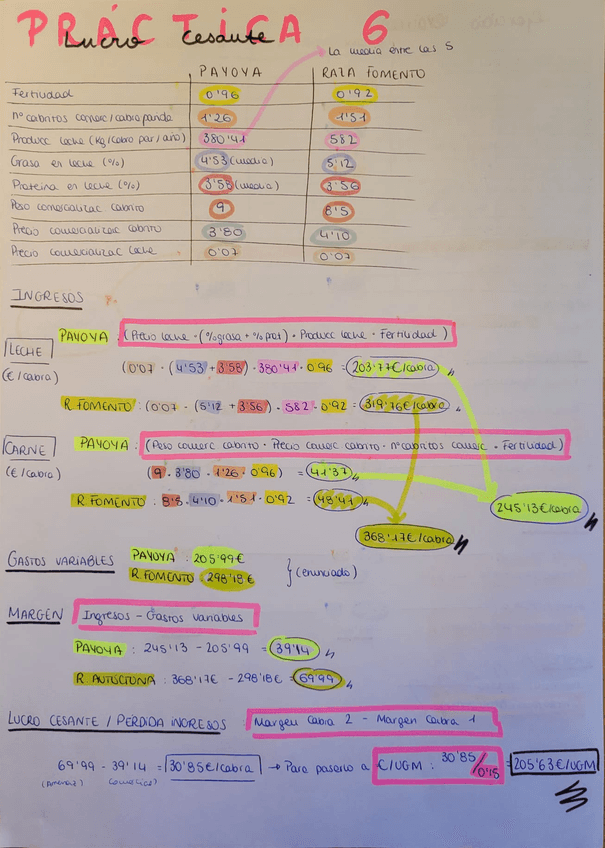 PRÁCTICA 6
Lucro Cesante
La media entre las 5
PAYOYA RAZA FOMENTO
Fertilidad 0'96 0'92
nº cabritos comerc/cabra parida 1'26 1'51
Producc leche (kg/cabra par/año) 380'41 582
Grasa en leche (%) 4'53 (media) 5'12
Proteina en leche (%) 3'58 (media) 3'56
Peso comercializac cabrito 9 8'5
Precio comercializac cabrito 3'80 4'10
Precio comercializac leche 0'07 0'07
INGRESOS
PAYOYA: (Precio leche · (%grasa + % prot) · Producc leche · Fertilidad)
LECHE
(€/cabra)
(0'07 · (4'53 + 3'58) · 380'41 · 0'96 = 203'77€/cabra
R. FOMENTO: (0'07 · (5'12 + 3'56) · 582 · 0'92 = 319'76€/cabra
CARNE
(€/cabra)
PAYOYA: (Peso comerc cabrito · Precio comerc cabrito · nº cabritos comerc · Fertilidad)
(9 · 3'80 · 1'26 · 0'96) = 41'37
R. FOMENTO: 8'5 · 4'10 · 1'51 · 0'92 = 48'41
245'13€/cabra
368'17€/cabra
GASTOS VARIABLES PAYOYA: 205'99€
R. FOMENTO: 298'18€ } (enunciado)
MARGEN Ingresos - Gastos variables
PAYOYA: 245'13 - 205'99 = 39'14
R. AUTÓCTONA: 368'17€ - 298'18€ = 69'99
LUCRO CESANTE / PERDIDA INGRESOS: Margen Cabra 2 - Margen Cabra 1
69'99 - 39'14 = 30'85€/cabra → Para pasarlo a €/UGM: 30'85/0'15 = 205'63€/UGM